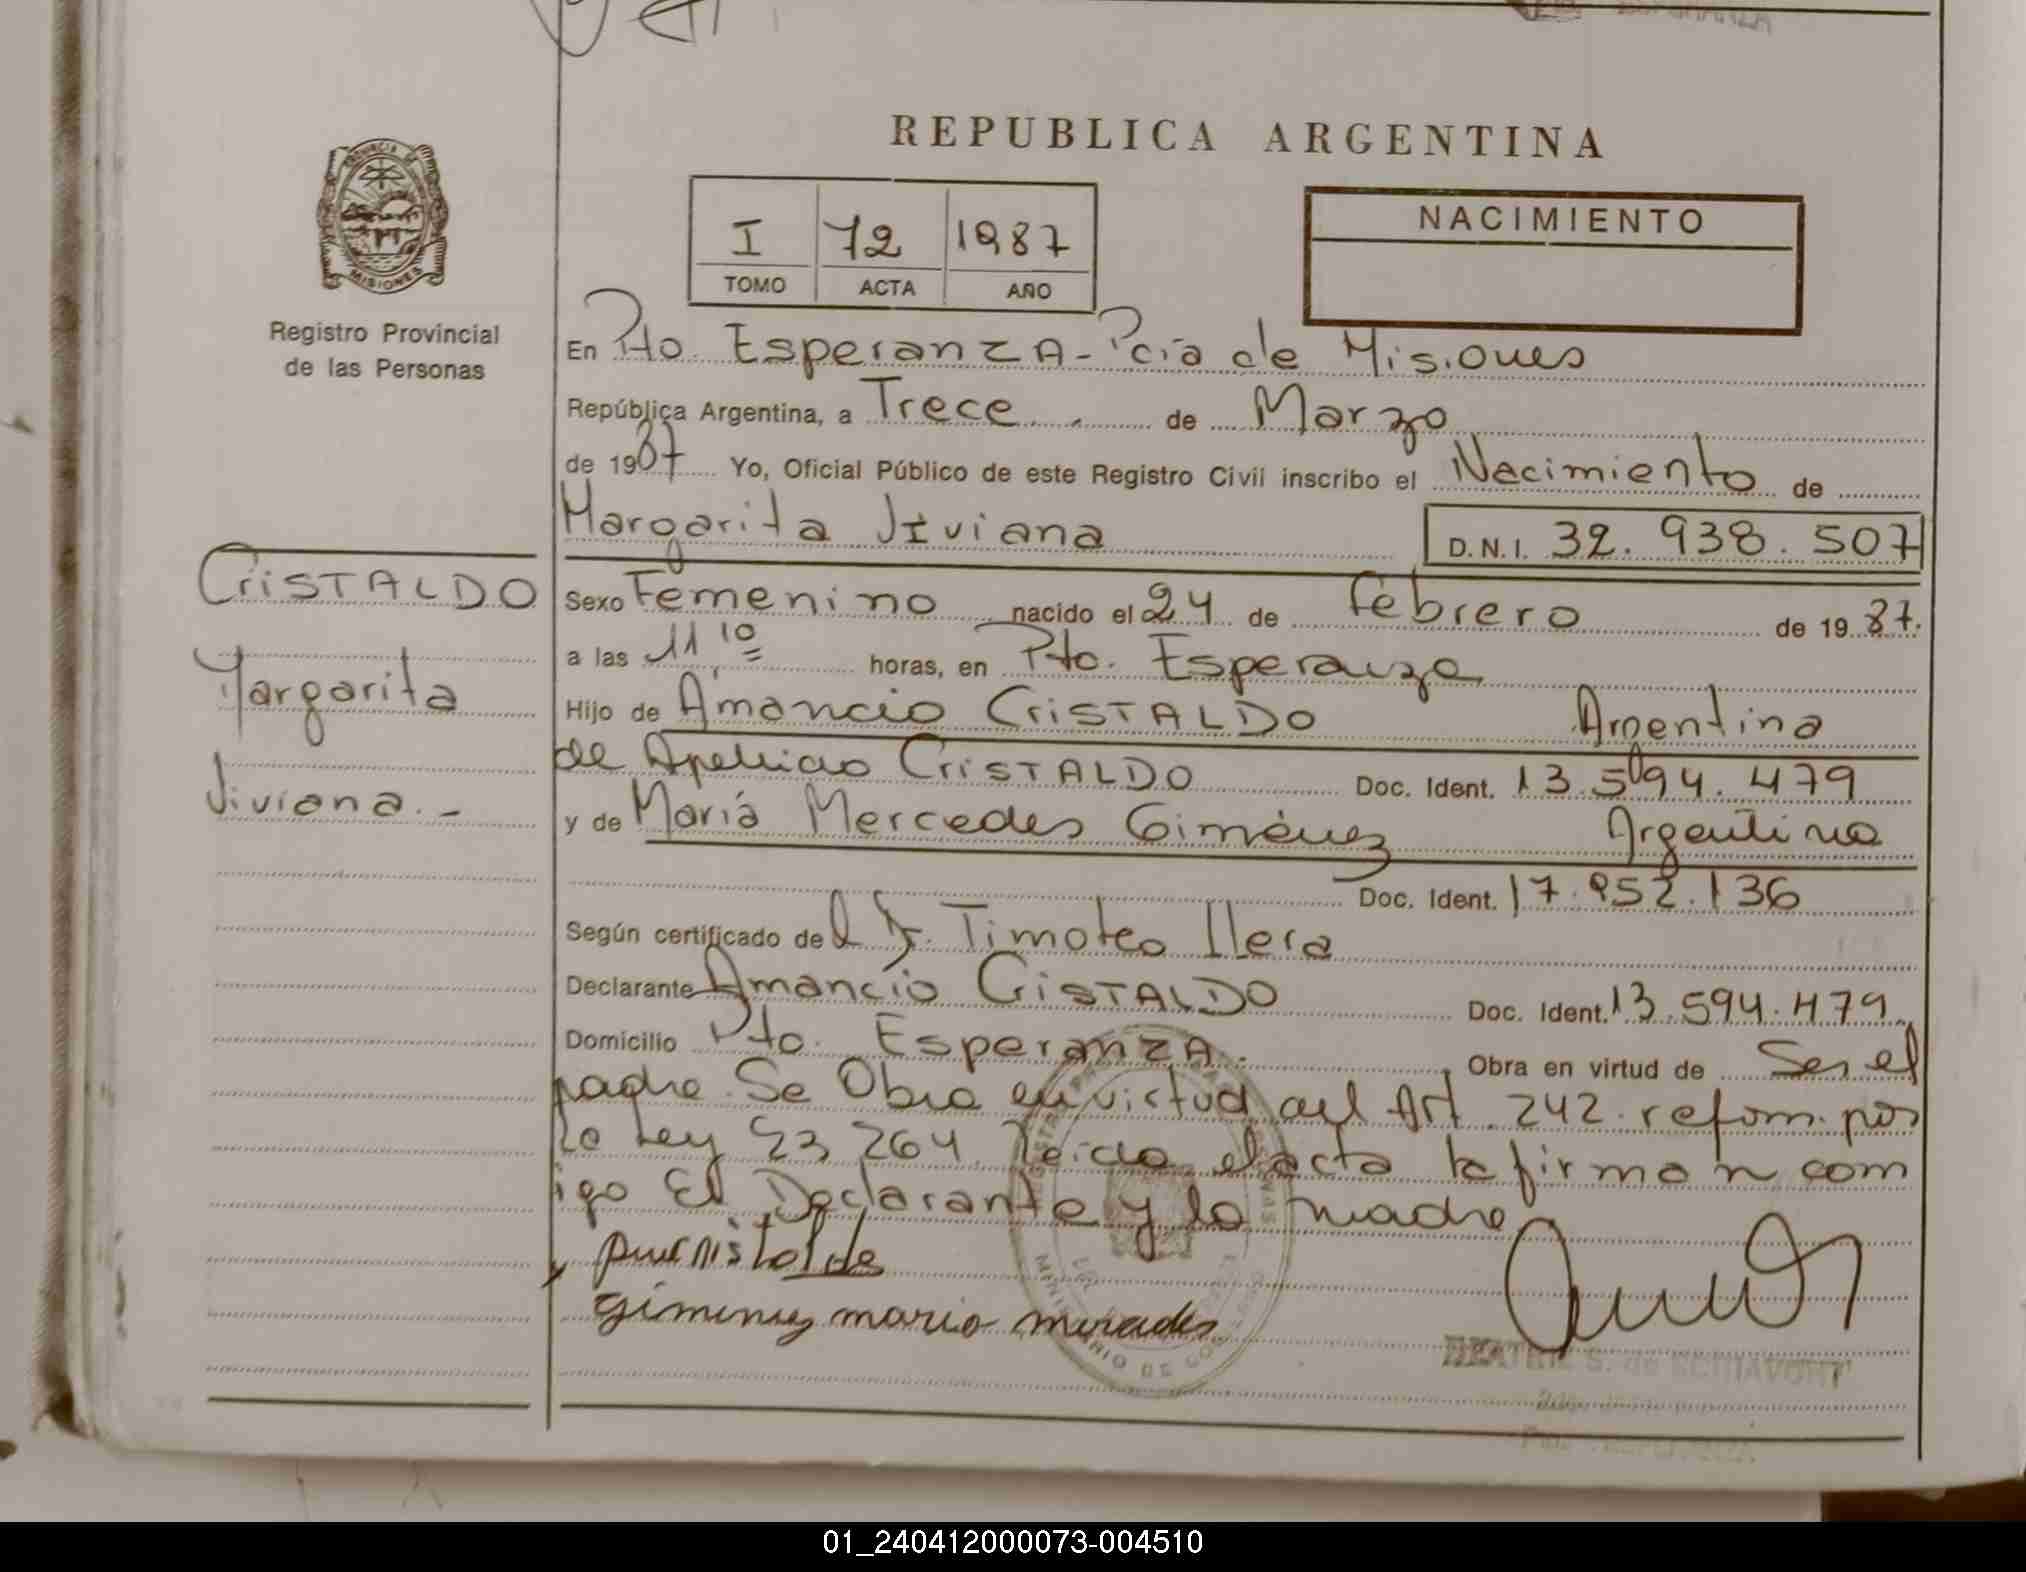 REPUBLICA ARGENTINA
PROVINCIA DE
MISIONES
Registro Provincial
de las Personas
I 72 1987
TOMO ACTA AÑO
NACIMIENTO
En Pto. Esperanza - Pcia de Misiones
República Argentina, a Trece de Marzo
de 1987 Yo, Oficial Público de este Registro Civil inscribo el Nacimiento de
Margarita Viviana
D.N.I. 32.938.507
CRISTALDO
Margarita
Viviana.-
Sexo Femenino nacido el 24 de febrero de 1987.
a las 11,10 horas, en Pto. Esperanza
Hijo de Amancio CRISTALDO Argentina
de Apellido CRISTALDO Doc. Ident. 13.594.479
y de María Mercedes Giménez Argentina
Doc. Ident. 17.952.136
Según certificado del Dr. Timoteo Llera
Declarante Amancio CRISTALDO Doc. Ident. 13.594.479
Domicilio Pto. Esperanza. Obra en virtud de Ser el
padre. Se Obra en virtud del Art. 242 reform. por
la Ley 23 264. Leida el acta la firman com
igo El Declarante y la madre
gimenez maria mercedes
BEATRIZ S. de SCHIAVONI
01_240412000073-004510